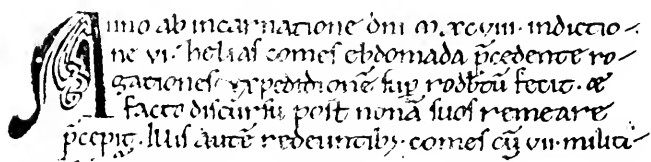 Anno ab incarnatione dni M.xcviii. indictio-
ne vi. helias comes ebdomada p̄cedente ro-
gationes expeditionē sup̱ rodb̄tū fecit. &
facto discursu post nonā suos remeare
p̄cepit. Illis autē redeuntibꝫ. comes cū vii. militi-